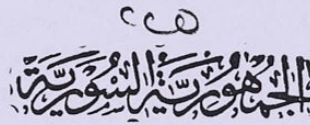 الجُمْهُورِيَّة السُّورِيَّة